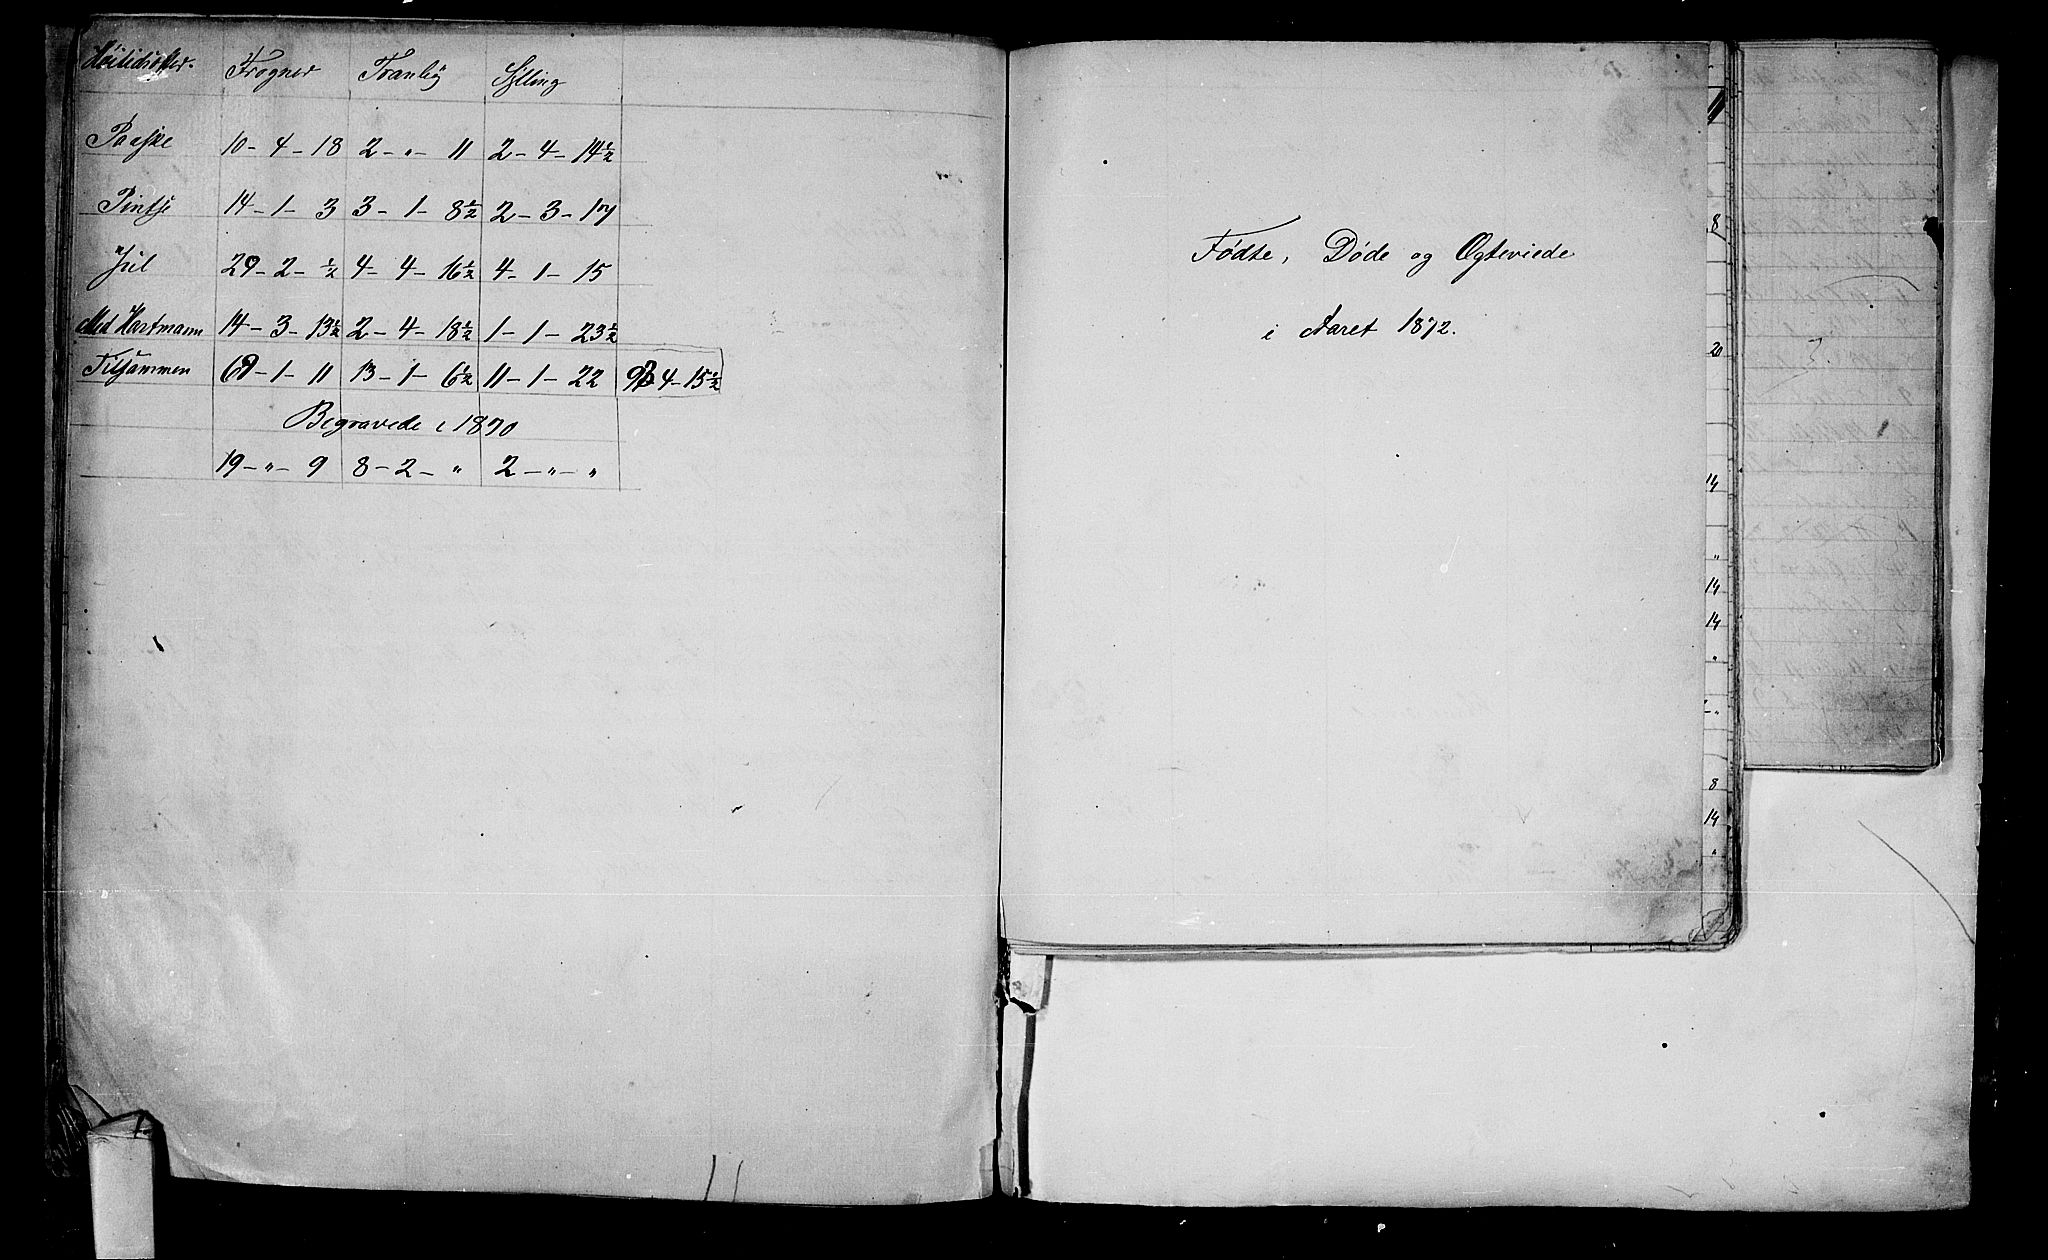 Høitidsofler. Frogner Tranby Sylling
Paaske 10 - 4 - 18 2 - " - 11 2 - 4 - 14½
Pintse 14 - 1 - 3 3 - 1 - 8½ 2 - 3 - 17
Jul 29 - 2 - ½ 4 - 4 - 16½ 4 - 1 - 15
Med Hartmann 14 - 3 - 13½ 2 - 4 - 18½ 1 - 1 - 23½
Tilsammen 69 - 1 - 11 13 - 1 - 6½ 11 - 1 - 22 93 - 4 - 15½
Begravede i 1870
19 - " - 9 8 - 2 - " 2 - " - "
Fødte, Døde og Ægteviede
i Aaret 1872.
8
20
14
"
14
14
"
"
8
14
"